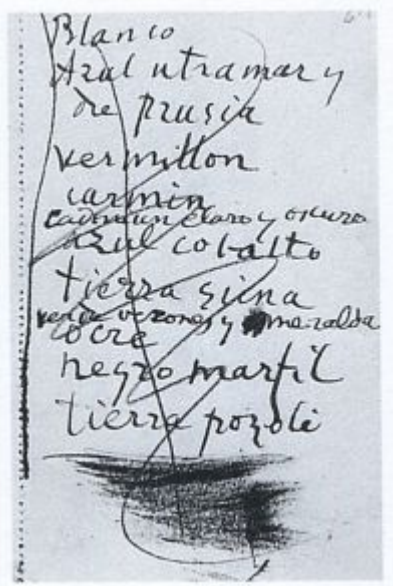 Blanco
Azul utramar y
de prusia
vermillon
carmin
cadmiun claro y oscuro
azul cobalto
tierra siena
verde verones y esmeralda
ocre
negro marfil
tierra pozoli